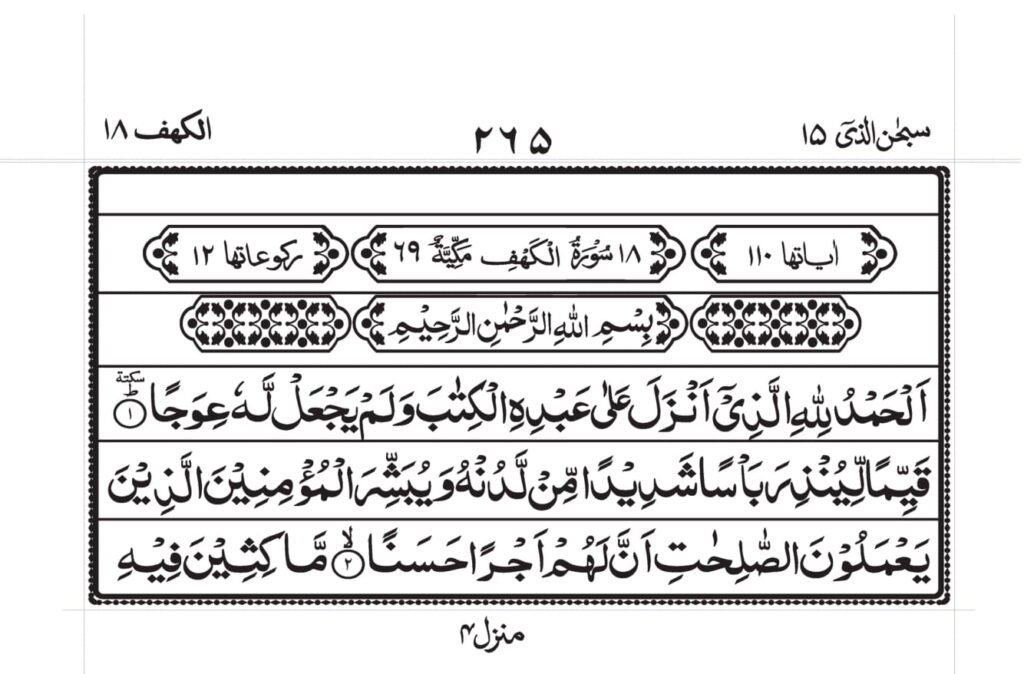 سبحٰن الذیٓ ۱۵ ۲۶۵ الکهف ۱۸
اٰیاتها ۱۱۰ ۱۸ سُوْرَةُ الْكَهْفِ مَكِّيَّةٌ ۶۹ رکوعاتها ۱۲
بِسْمِ اللّٰهِ الرَّحْمٰنِ الرَّحِيْمِ
اَلْحَمْدُ لِلّٰهِ الَّذِيْٓ اَنْزَلَ عَلٰى عَبْدِهِ الْكِتٰبَ وَلَمْ يَجْعَلْ لَّهٗ عِوَجًا ؕ سكتة ۱
قَيِّمًا لِّيُنْذِرَ بَاْسًا شَدِيْدًا مِّنْ لَّدُنْهُ وَيُبَشِّرَ الْمُؤْمِنِيْنَ الَّذِيْنَ
يَعْمَلُوْنَ الصّٰلِحٰتِ اَنَّ لَهُمْ اَجْرًا حَسَنًا ۙ ۲ مَّاكِثِيْنَ فِيْهِ
منزل ۴